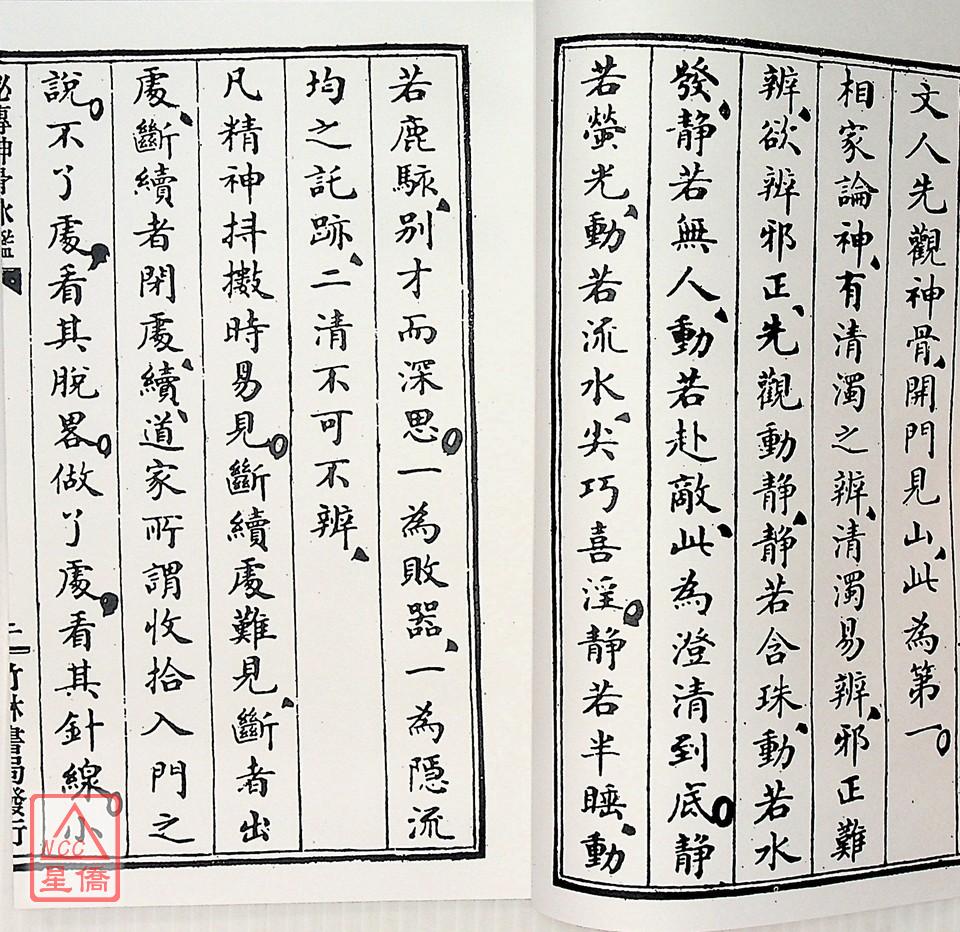 文人先觀神骨、開門見山、此為第一。
相家論神、有清濁之辨、清濁易辨、邪正難
辨、欲辨邪正、先觀動靜、靜若含珠、動若水
發、靜若無人、動若赴敵、此為澄清到底。靜
若螢光、動若流水、尖巧喜淫。靜若半睡、動
若鹿駭、別才而深思。一為敗器、一為隱流
均之託跡、二清不可不辨、
凡精神抖擻時易見。斷續處難見、斷者出
處、斷續者閉處、續、道家所謂收拾入門之
說。不了處看其脫畧。做了處、看其針線。小
神骨冰鑑
竹林書局發行
NCC
星僑